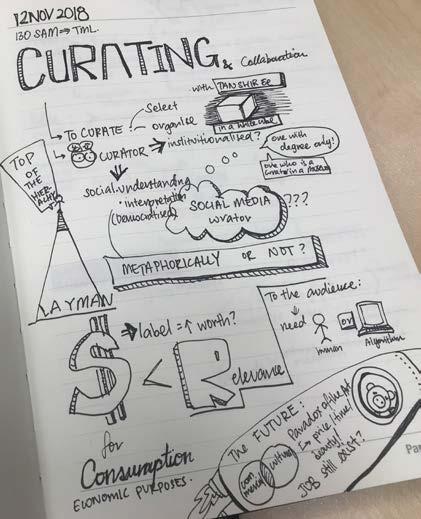 12 NOV 2018
130 SAM ⇒ TML.
CURATING & Collaboration
with TAN SHIR EE
→ TO CURATE:
Select
organise
in a white cube
→ CURATOR → institutionalised?
one with degree only!
one who is a curator in a museum
TOP OF THE HIERARCHY
social understanding
• interpretation
(Democratised)
SOCIAL MEDIA
curator
???
METAPHORICALLY OR NOT?
LAYMAN
$ ⇒ label = ↑ worth?
< Relevance
To the audience:
need
Human
OR
Algorithm
for
Consumption
ECONOMIC PURPOSES.
The FUTURE:
commercial
cultural
Paradox of the Art
→ price / time /
beauty!
JOB still EXIST?